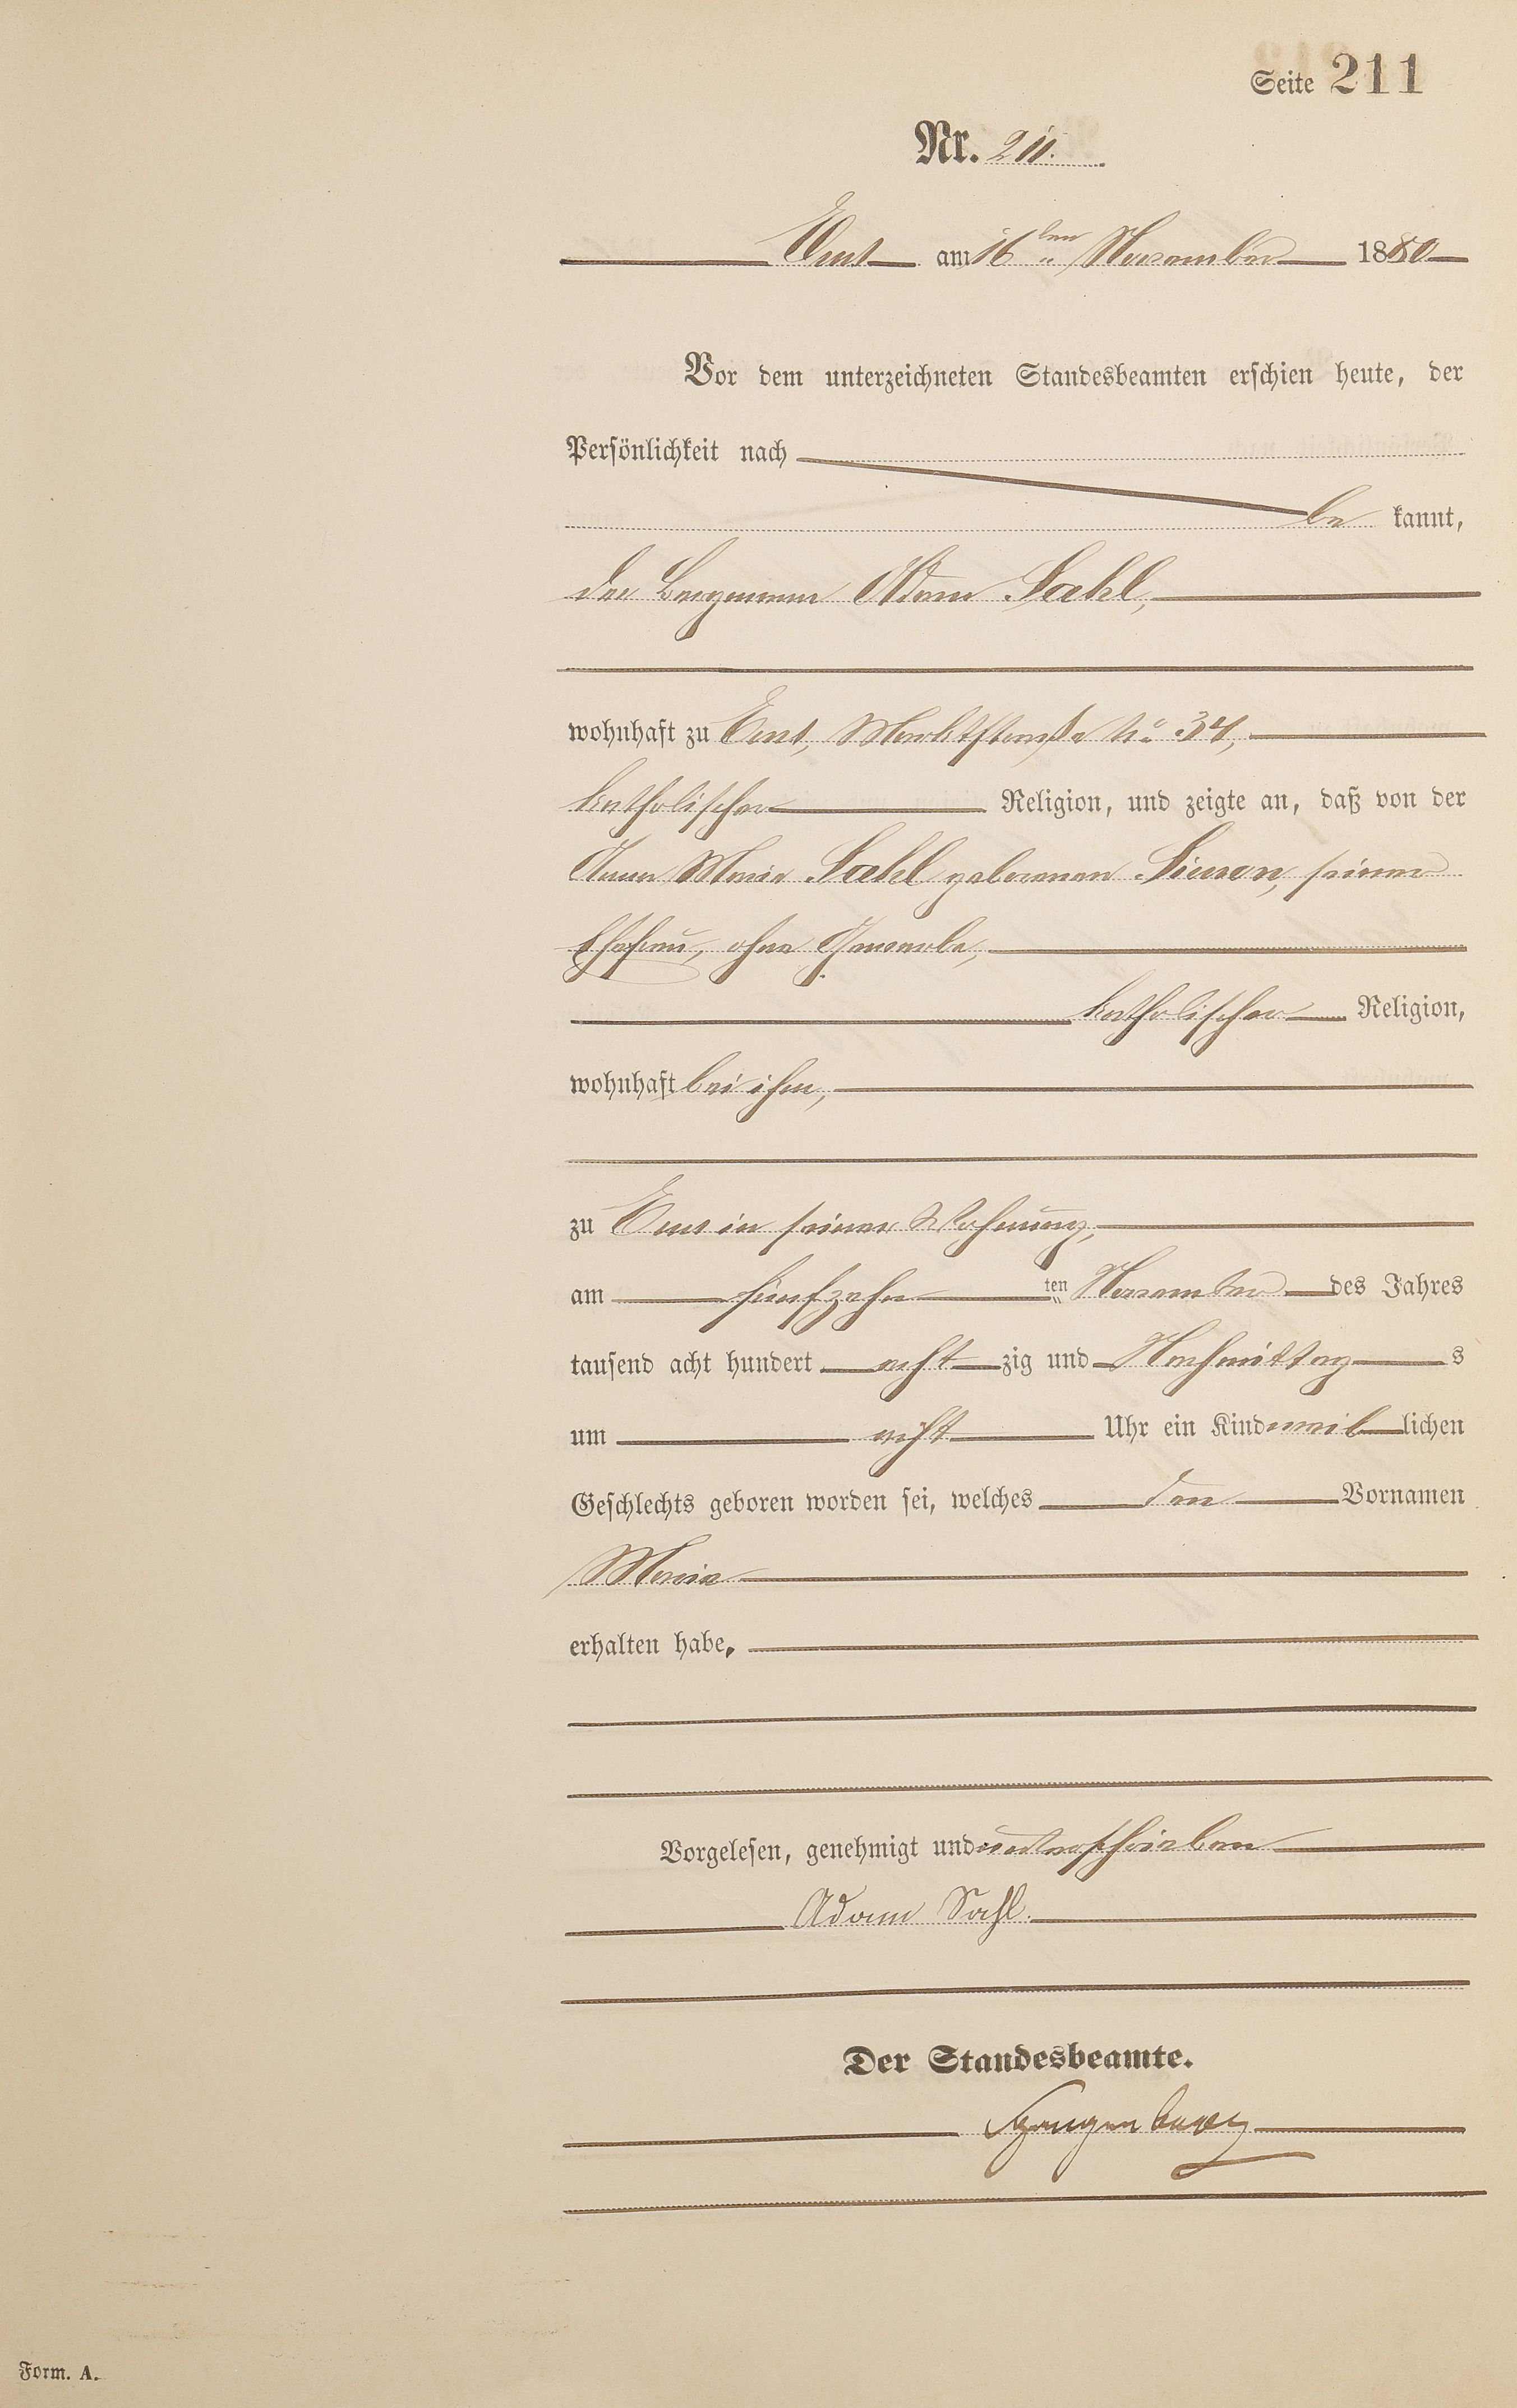 Seite 211
Nr. 211.
Ems am 16ten November 1880
Vor dem unterzeichneten Standesbeamten erschien heute, der
Persönlichkeit nach
be kannt,
der Bergmann Adam Sahl,
wohnhaft zu Ems, Marktstraße No 34,
katholischer Religion, und zeigte an, daß von der
Anna Maria Sahl geborenen Simon, seiner
Ehefrau, ohne Gewerbe,
katholischer Religion,
wohnhaft bei ihm,
zu Ems in seiner Wohnung,
am fünfzehn ten November des Jahres
tausend acht hundert acht zig und Nachmittag s
um acht Uhr ein Kind weib lichen
Geschlechts geboren worden sei, welches den Vornamen
Maria
erhalten habe.
Vorgelesen, genehmigt und unterschrieben
Adam Sahl.
Der Standesbeamte.
Form. A.